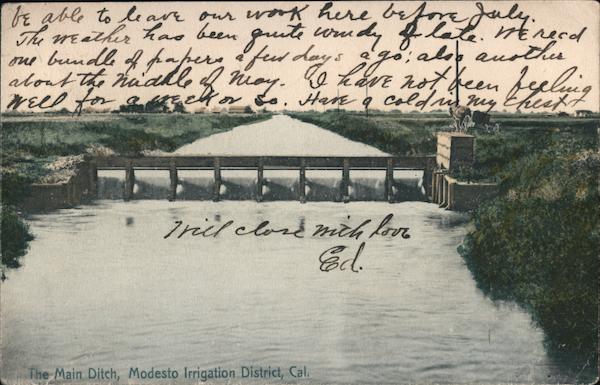 be able to leave our work here before July.
The weather has been quite windy of late. We read
one bundle of papers a few days ago; also another
about the middle of May. I have not been feeling
well for a week or so. Have a cold in my chest +
Will close with love
Ed.
The Main Ditch, Modesto Irrigation District, Cal.